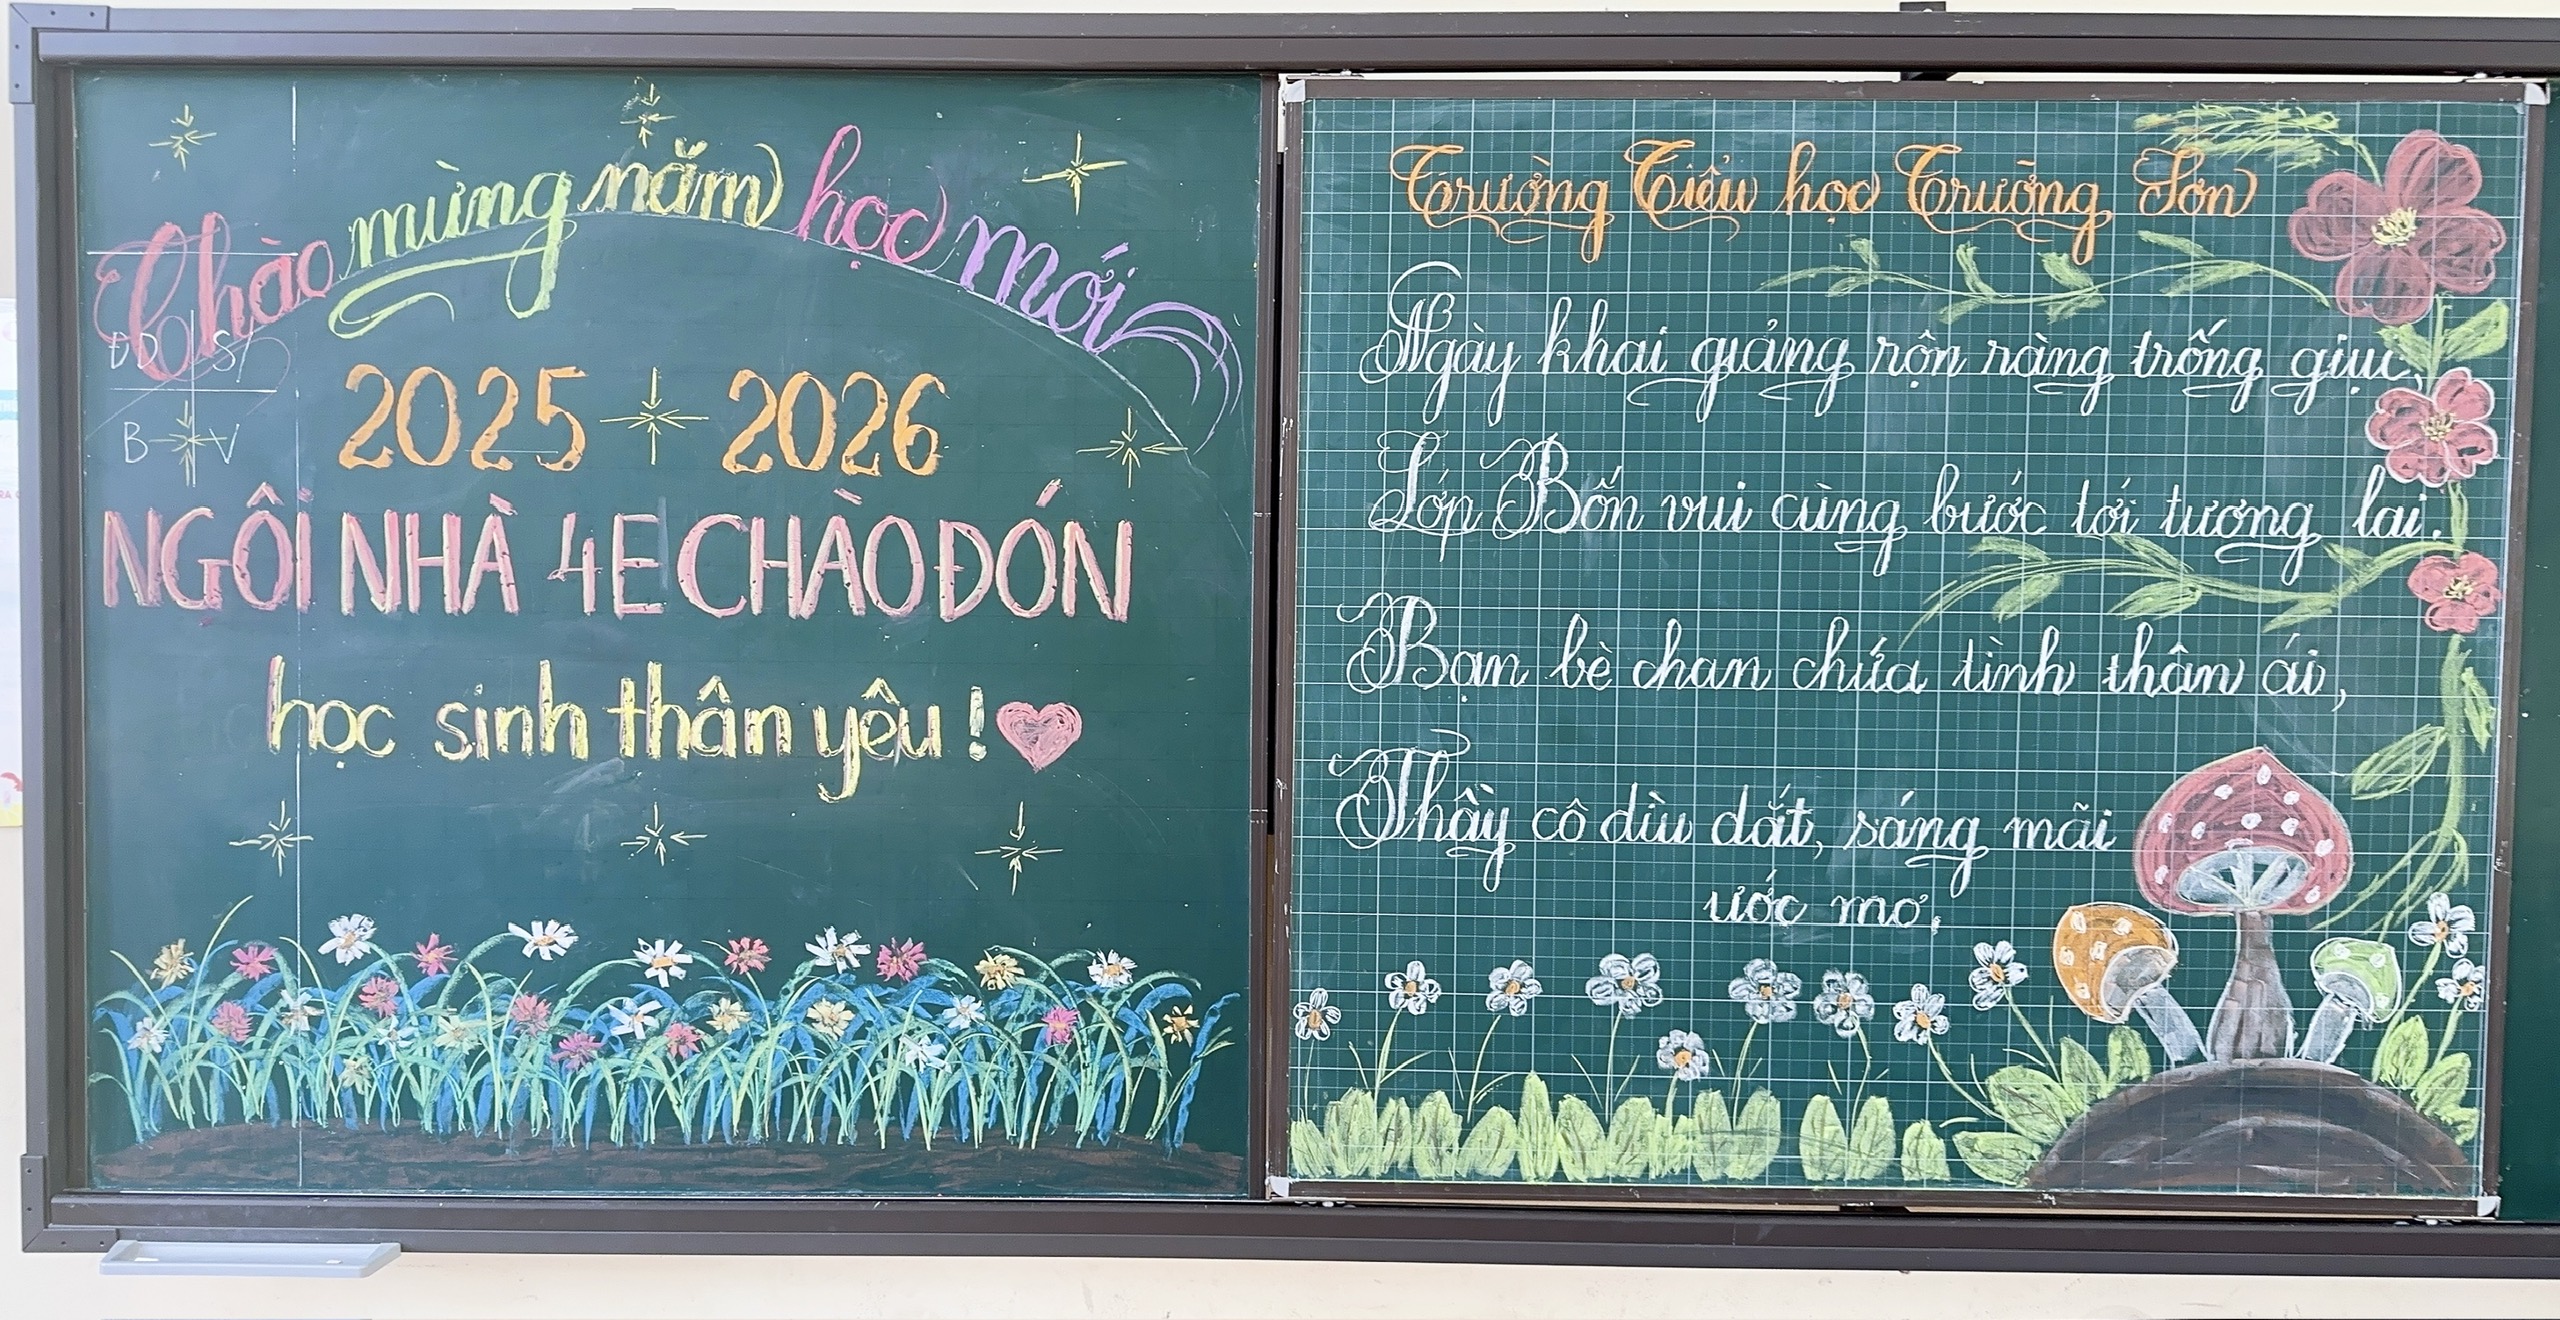 Chào mừng năm học mới
ĐD S/
B V
2025 2026
NGÔI NHÀ 4E CHÀO ĐÓN
học sinh thân yêu !
Trường Tiểu học Trường Sơn
Ngày khai giảng rộn ràng trống giục,
Lớp Bốn vui cùng bước tới tương lai.
Bạn bè chan chứa tình thân ái,
Thầy cô dìu dắt, sáng mãi
ước mơ.